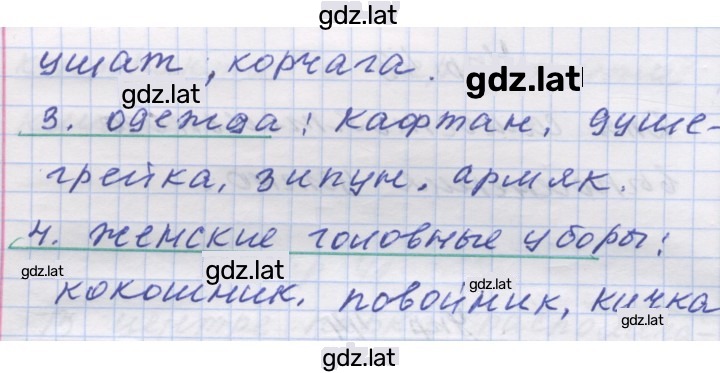 gdz.lat
ушат, корчага.
gdz.lat
gdz.lat
3. одежда: кафтан, душе-
грейка, зипун, армяк.
4. женские головные уборы:
gdz.lat
gdz.lat
gdz.lat
кокошник, повойник, кичка
gdz.lat
gdz.lat